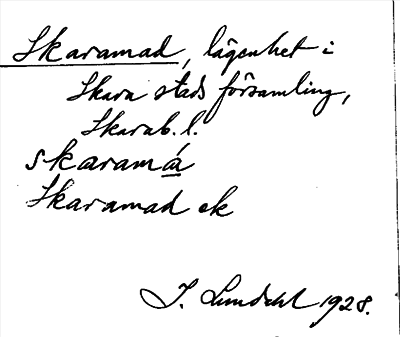 Skaramad, lägenhet i
Skara stads församling,
Skarab. l.
skaramá
Skaramad ek
I. Lundahl 1928.